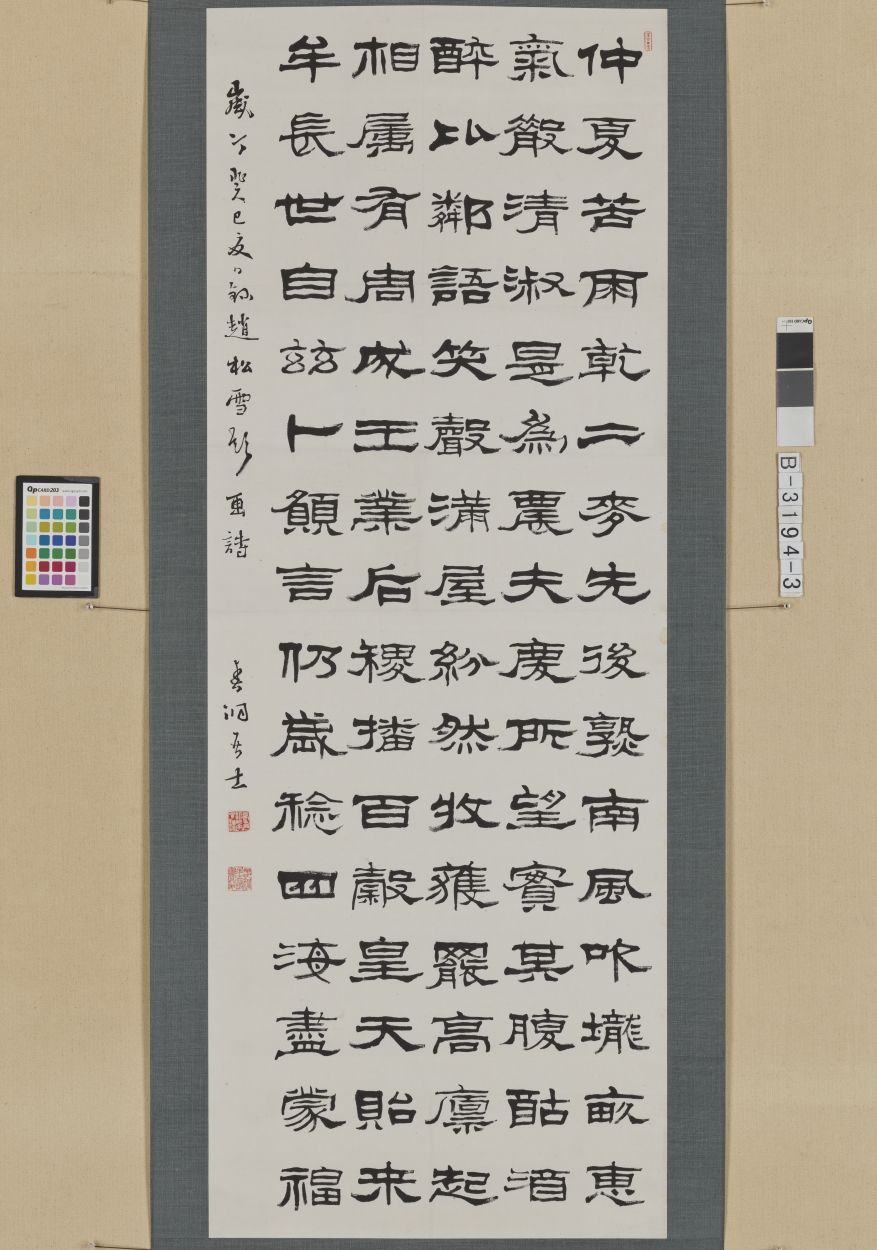 仲夏苦雨乾二麥先後熟南風吹壠畝惠
氣散清淑是為農夫慶所望實其腹酤酒
醉比鄰語笑聲滿屋紛然收穫罷高廩起
相屬有周成王業后稷播百穀皇天貽来
牟長世自茲卜願言仍歲稔四海盡蒙福
歲次癸巳夏日錄趙松雪題画詩
居士
QPCARD 203
B-3194-3